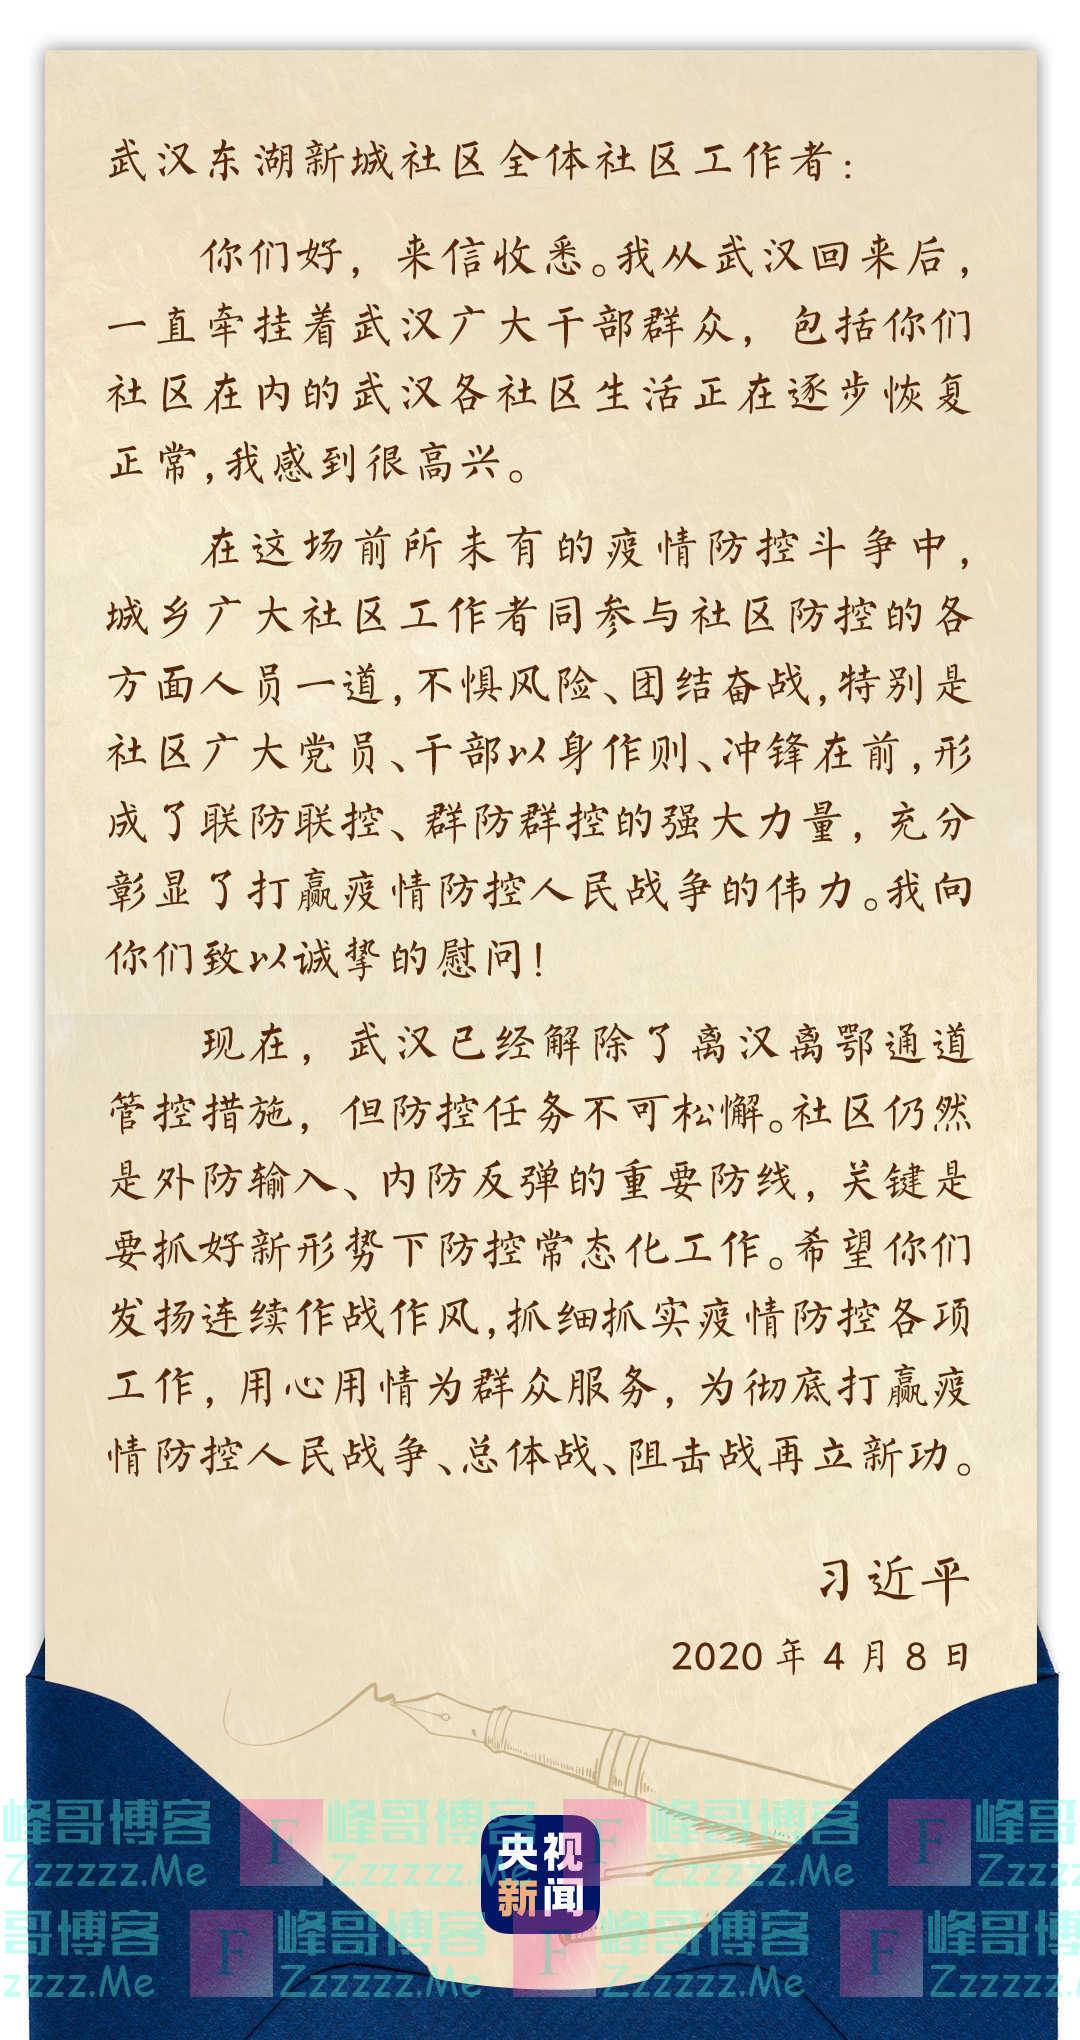 武汉东湖新城社区全体社区工作者：
你们好，来信收悉。我从武汉回来后，
一直牵挂着武汉广大干部群众，包括你们
社区在内的武汉各社区生活正在逐步恢复
正常，我感到很高兴。
在这场前所未有的疫情防控斗争中，
城乡广大社区工作者同参与社区防控的各
方面人员一道，不惧风险、团结奋战，特别是
社区广大党员、干部以身作则、冲锋在前，形
成了联防联控、群防群控的强大力量，充分
彰显了打赢疫情防控人民战争的伟力。我向
你们致以诚挚的慰问！
现在，武汉已经解除了离汉离鄂通道
管控措施，但防控任务不可松懈。社区仍然
是外防输入、内防反弹的重要防线，关键是
要抓好新形势下防控常态化工作。希望你们
发扬连续作战作风，抓细抓实疫情防控各项
工作，用心用情为群众服务，为彻底打赢疫
情防控人民战争、总体战、阻击战再立新功。
习近平
2020 年 4 月 8 日
央视
新闻
峰哥博客 F 峰哥博客 F 峰哥博客 F 峰哥
Zzzzzz.Me Zzzzzz.Me Zzzzzz.Me Zzzzz
哥博客 F 峰哥博客 F 峰哥博客 F 峰哥博
zzzzz.Me Zzzzzz.Me Zzzzzz.Me Zzzzzz.